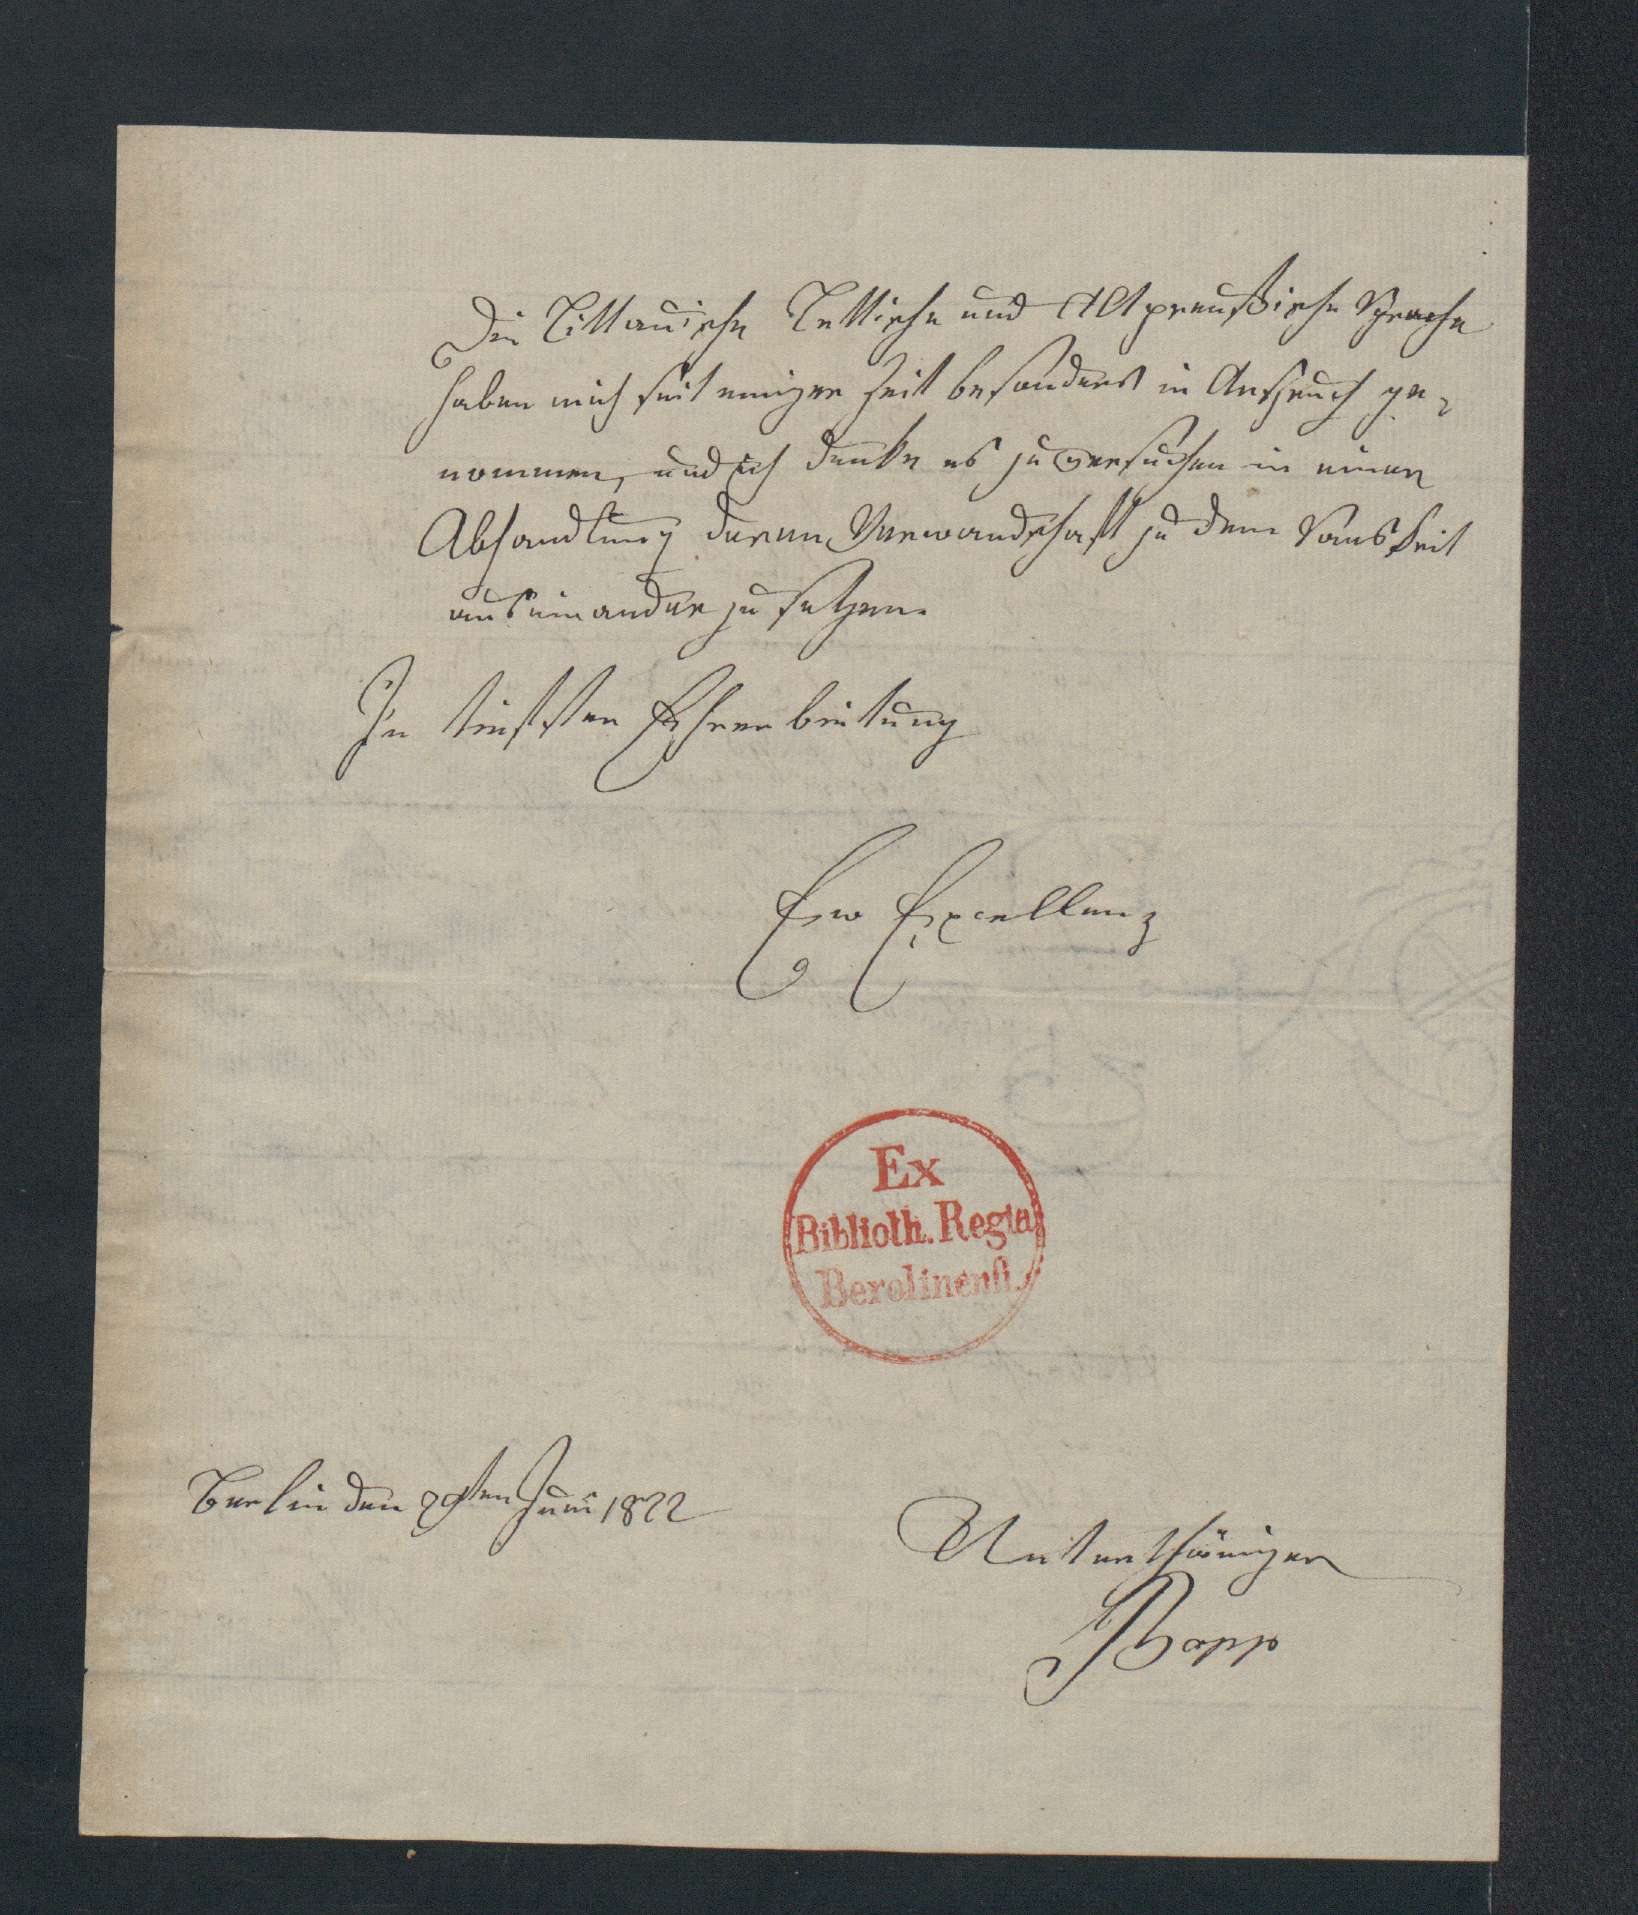 Die Littauische Lettische und Altpreußische Sprache
haben mich seit einiger Zeit besonders in Anspruch ge-
nommen, und ich denke es zu versuchen in einer
Abhandlung deren Verwandschaft zu dem Sanskrit
auseinander zu setzen.
In tiefster Ehrerbietung
Ew Excellenz
Ex
Biblioth. Regia
Berolinenſi.
Berlin den 29sten Juni 1822
Unterthäniger
Bopp